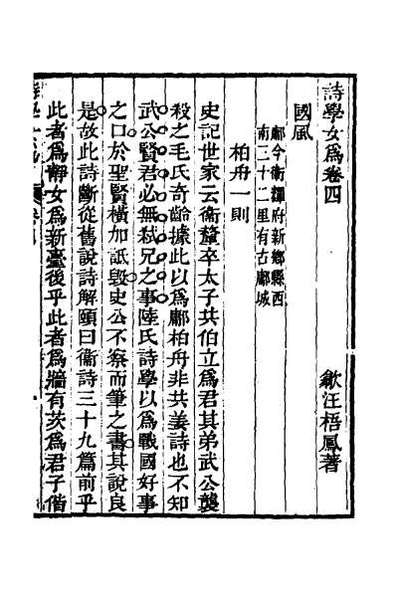 詩學女爲卷四
歙汪梧鳳著
國風
鄘今衞輝府新鄉縣西
南三十二里有古鄘城
柏舟一則
史記世家云衞釐卒太子共伯立爲君其弟武公襲
殺之毛氏奇齡據此以爲鄘柏舟非共姜詩也不知
武公賢君必無弑兄之事陸氏詩學以爲戰國好事
之口於聖賢橫加詆毀史公不察而筆之書其說良
是故此詩斷從舊說詩解頤曰衞詩三十九篇前乎
此者爲靜女爲新臺後乎此者爲牆有茨爲君子偕